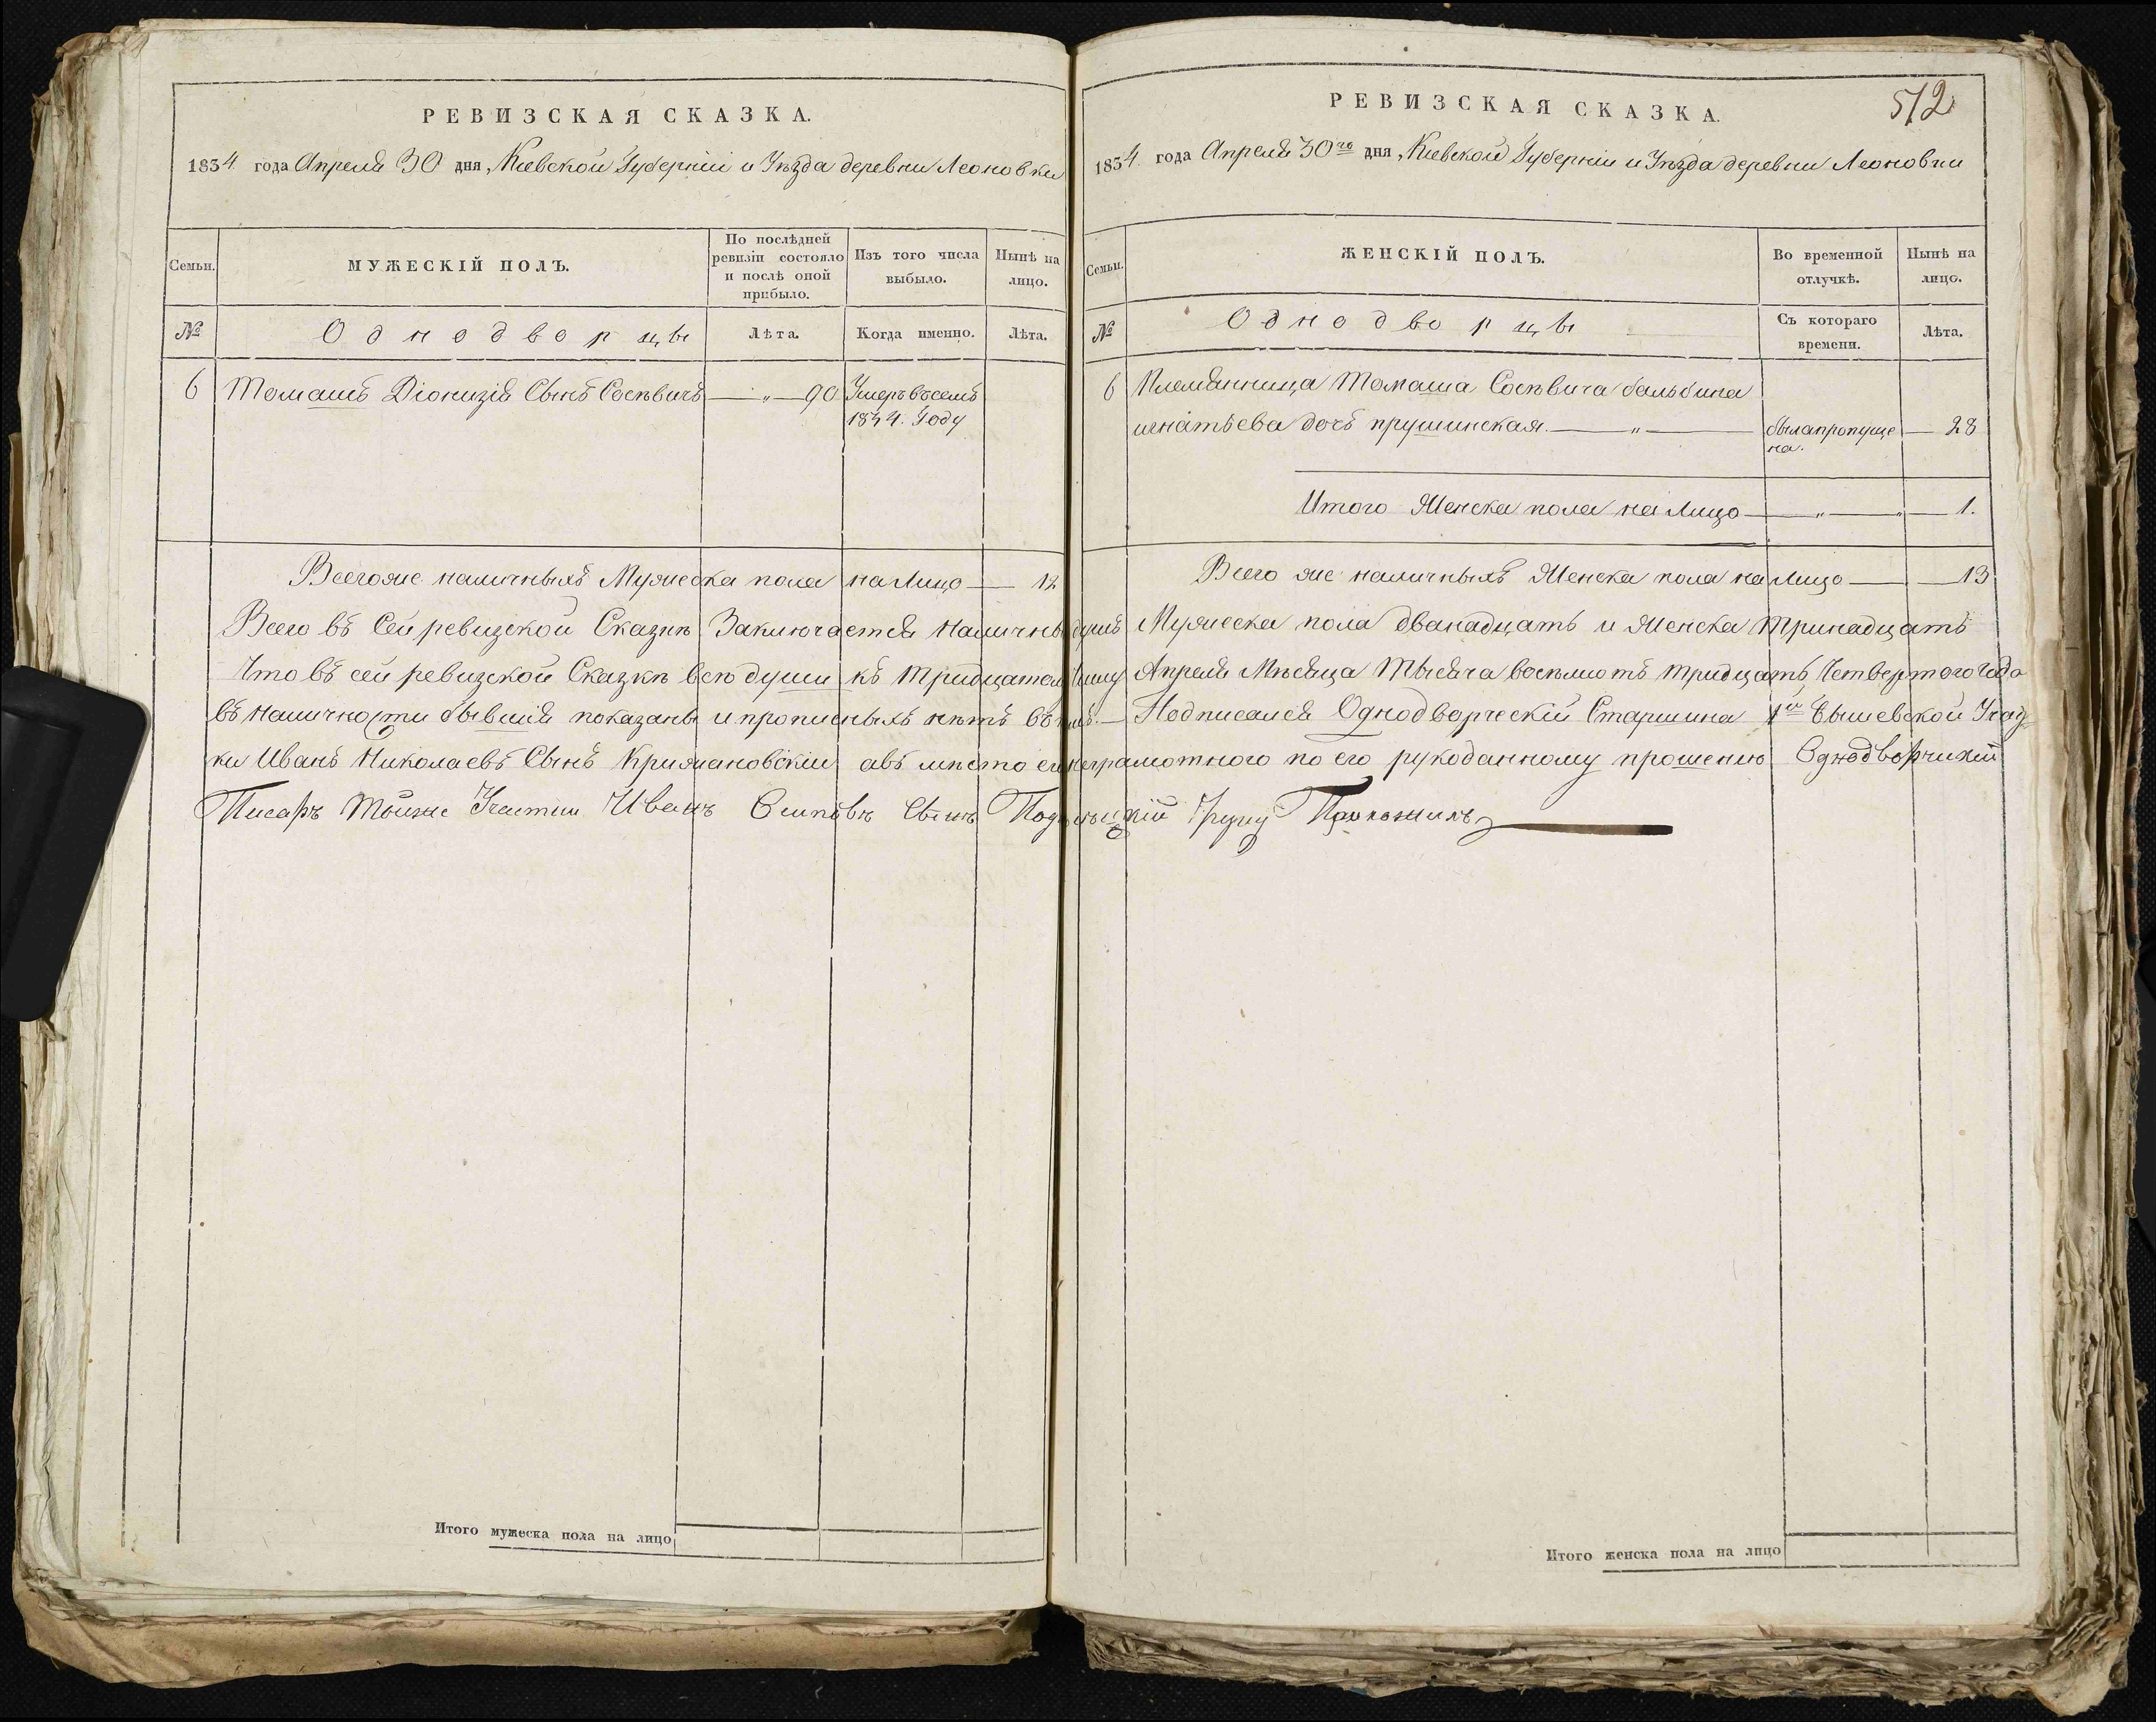 РЕВИЗСКАЯ СКАЗКА.
1834 года Апреля 30 дня, Киевской Губерніи и Уѣзда деревни Леоновки
Семьи.
МУЖЕСКІЙ ПОЛЪ.
По послѣдней ревизіи состояло и послѣ оной прибыло.
Изъ того числа выбыло.
Нынѣ на лицо.
№
Однодворцы
Лѣта.
Когда именно.
Лѣта.
6 Томашъ Діонизія Сынъ Сосѣвичъ — „ — 90 Умеръ въ семъ
1834. Году
Всего же наличныхъ Мужеска пола на Лицо — 12
РЕВИЗСКАЯ СКАЗКА.
512
1834. года Апреля 30го дня, Киевской Губерніи и Уѣзда деревни Леоновки
Семьи.
ЖЕНСКІЙ ПОЛЪ.
Во временной отлучкѣ.
Нынѣ на лицо.
№
Однодворцы
Съ котораго времени.
Лѣта.
6 Племянница Томаша Сосѣвича бальбина
игнатьева дочь прушинская. — „ — была пропуще — 28
на.
Итого Женска пола на Лицо — „ — „ — 1.
Всего же наличныхъ Женска пола на Лицо — 13
Всего въ Сей ревизской Сказкѣ Заключается Наличны душъ Мужеска пола дванадцать и Женска Тринадцать
Что въ сей ревизской Сказкѣ всѣ души къ Тридцатому Апреля Мѣсяца Тысяча восѣмсотъ тридцать Четвертого Года
въ Наличности бывшія показаны и прописныхъ нѣтъ Подписался Однодворческій Старшина 1й
ки Иванъ Николаевъ Сынъ Крижановскій а въ мѣсто его неграмотного по его рукоданному прошению Однодворчикій
Писаръ Тойже Участки Иванъ Осиповъ Сынъ Руку Приложилъ
Итого мужеска пола на лицо
Итого женска пола на лицо